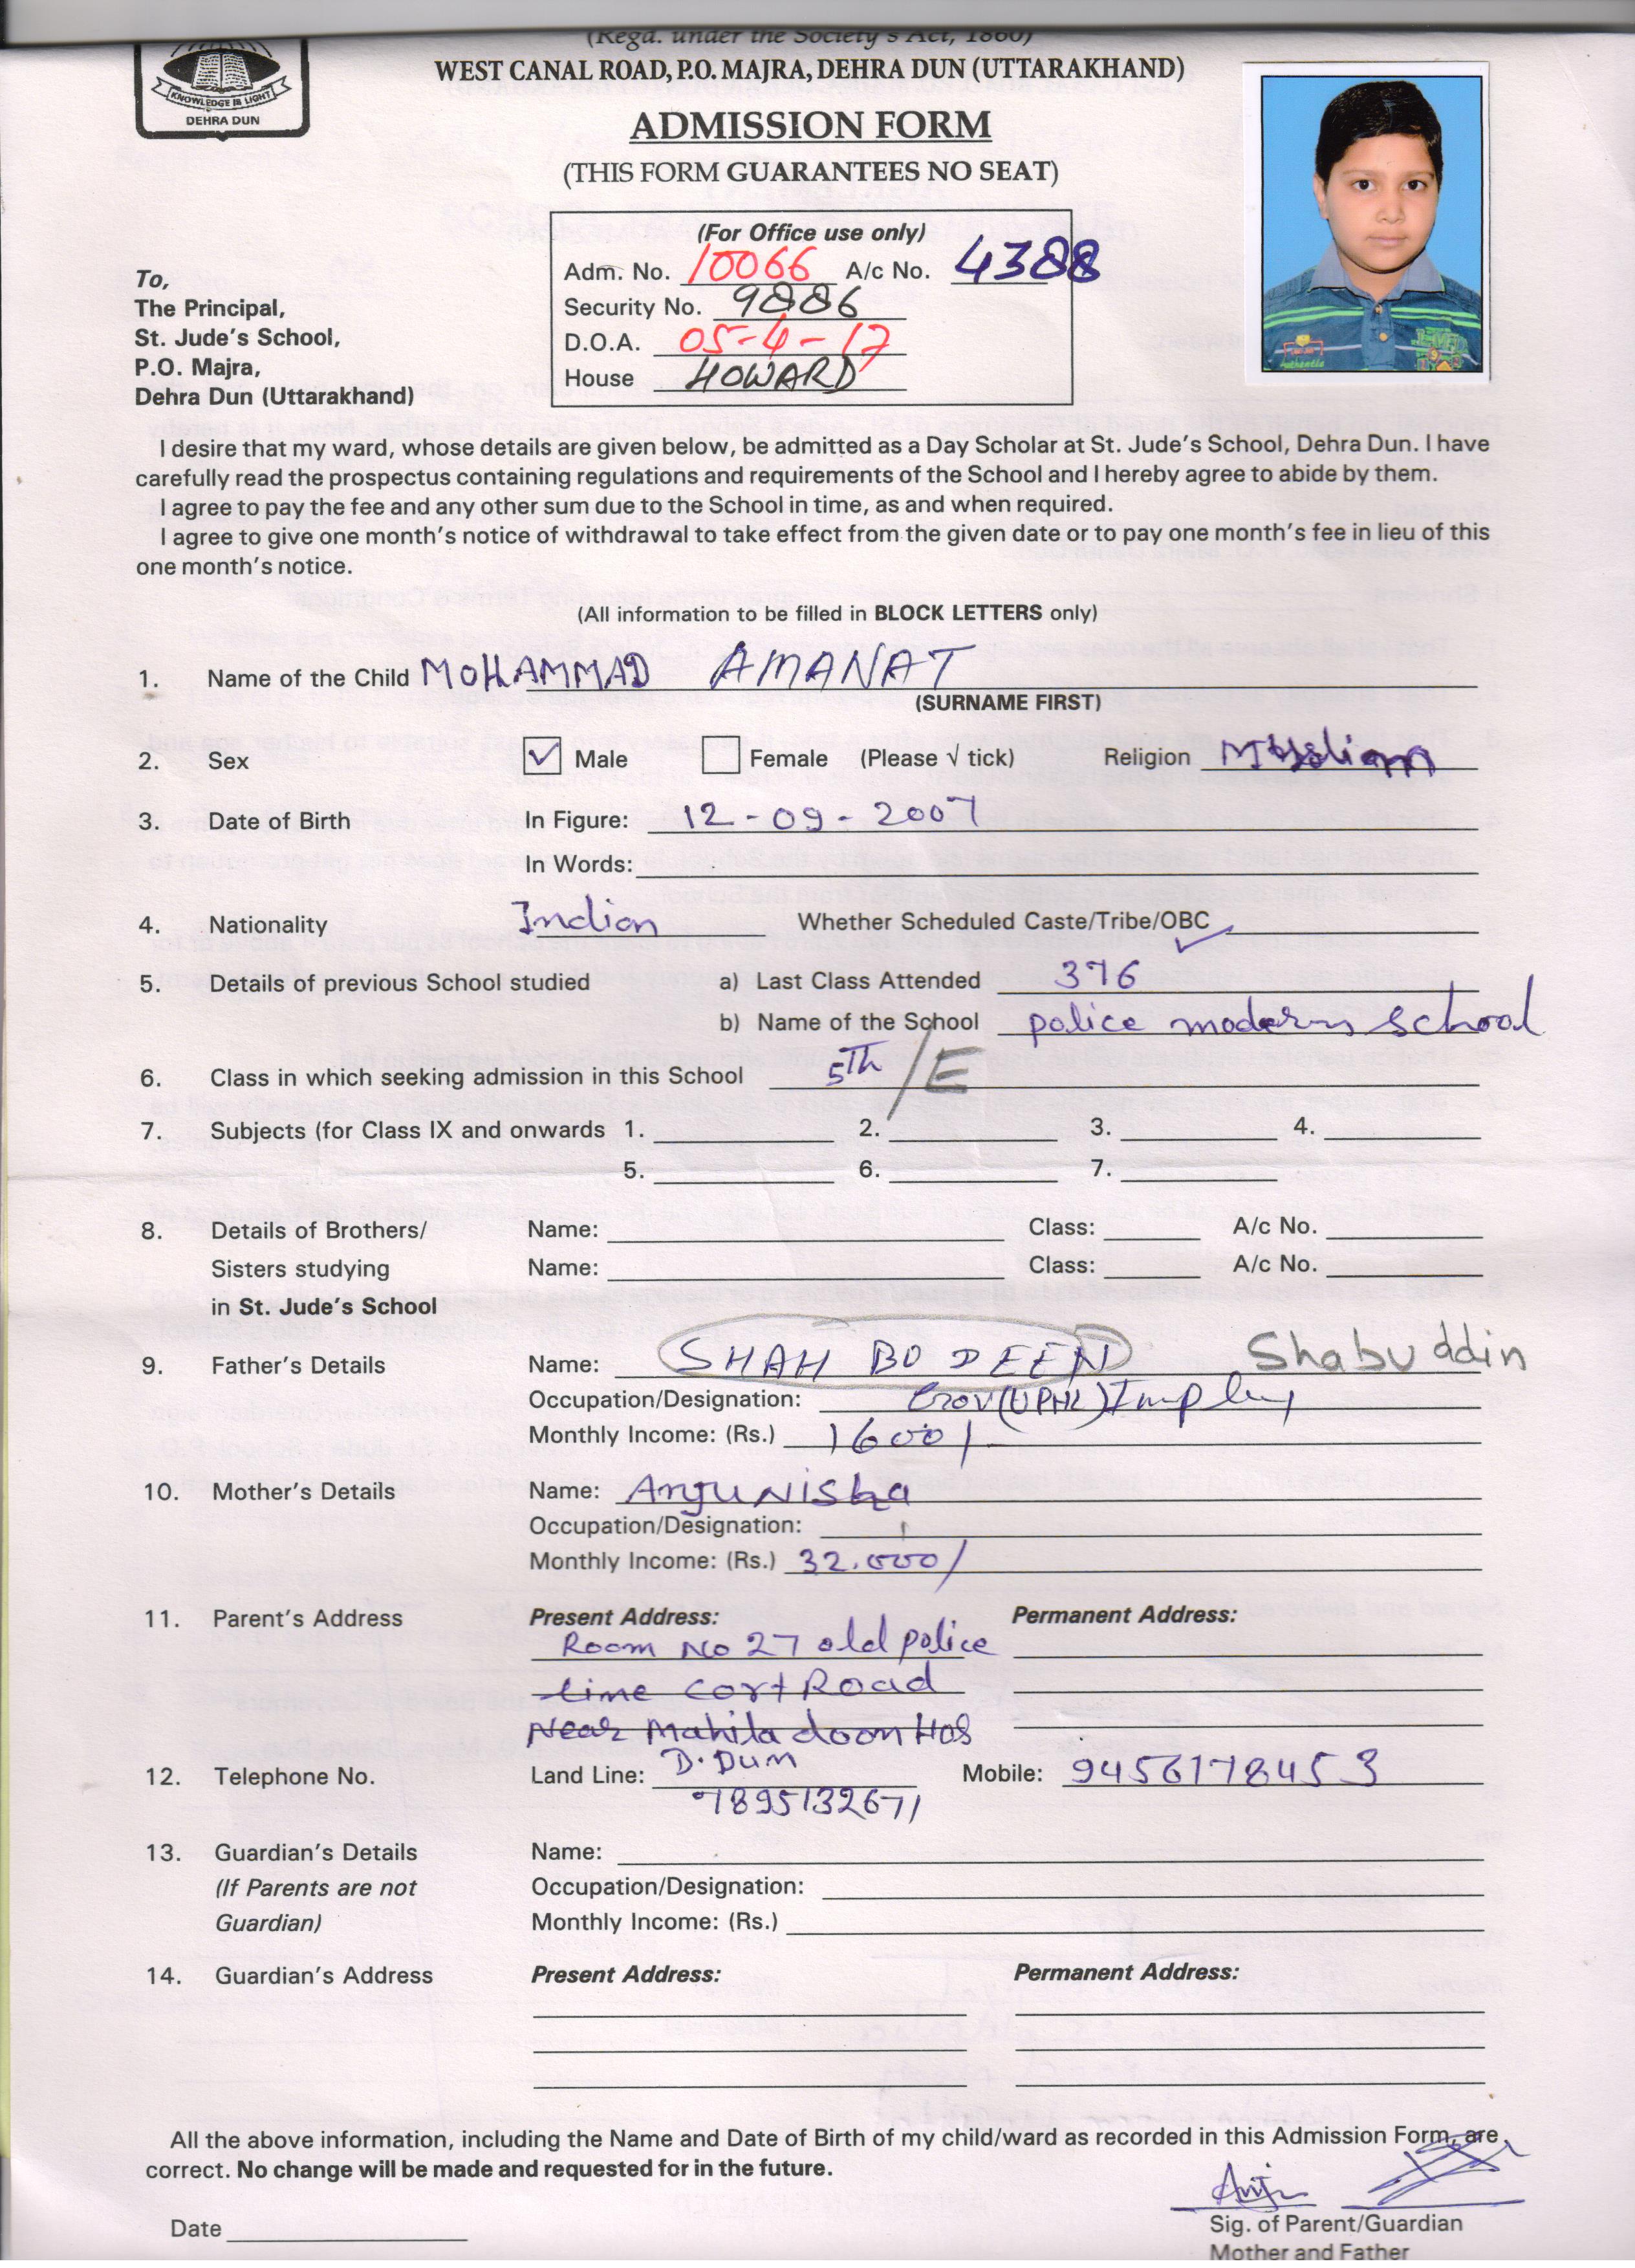 (Regd. under the Society's Act, 1860)
WEST CANAL ROAD, P.O. MAJRA, DEHRA DUN (UTTARAKHAND)
KNOWLEDGE IS LIGHT
DEHRA DUN
ADMISSION FORM
(THIS FORM GUARANTEES NO SEAT)
(For Office use only)
Adm. No. 10066 A/c No. 4388
Security No. 9886
D.O.A. 05-4-17
House HOWARD
To,
The Principal,
St. Jude's School,
P.O. Majra,
Dehra Dun (Uttarakhand)
I desire that my ward, whose details are given below, be admitted as a Day Scholar at St. Jude's School, Dehra Dun. I have
carefully read the prospectus containing regulations and requirements of the School and I hereby agree to abide by them.
I agree to pay the fee and any other sum due to the School in time, as and when required.
I agree to give one month's notice of withdrawal to take effect from the given date or to pay one month's fee in lieu of this
one month's notice.
(All information to be filled in BLOCK LETTERS only)
1. Name of the Child MOHAMMAD AMANAT
(SURNAME FIRST)
2. Sex Male Female (Please √ tick) Religion
3. Date of Birth In Figure: 12-09-2007
In Words:
4. Nationality Indian Whether Scheduled Caste/Tribe/OBC
5. Details of previous School studied a) Last Class Attended 376
b) Name of the School police modern school
6. Class in which seeking admission in this School 5Th /E
7. Subjects (for Class IX and onwards 1. 2. 3. 4.
5. 6. 7.
8. Details of Brothers/ Name: Class: A/c No.
Sisters studying Name: Class: A/c No.
in St. Jude's School
9. Father's Details Name: SHAH BO DEEN Shabuddin
Occupation/Designation: (UPNL)
Monthly Income: (Rs.) 1600/-
10. Mother's Details Name: Anju Nisha
Occupation/Designation:
Monthly Income: (Rs.) 32.000/
11. Parent's Address Present Address: Permanent Address:
Room No 27 old police
line cort Road
Near Mahila doon Hos
D.Dum
12. Telephone No. Land Line: Mobile: 9456178453
7895132671
13. Guardian's Details Name:
(If Parents are not Occupation/Designation:
Guardian) Monthly Income: (Rs.)
14. Guardian's Address Present Address: Permanent Address:
All the above information, including the Name and Date of Birth of my child/ward as recorded in this Admission Form, are
correct. No change will be made and requested for in the future.
Date
Sig. of Parent/Guardian
Mother and Father